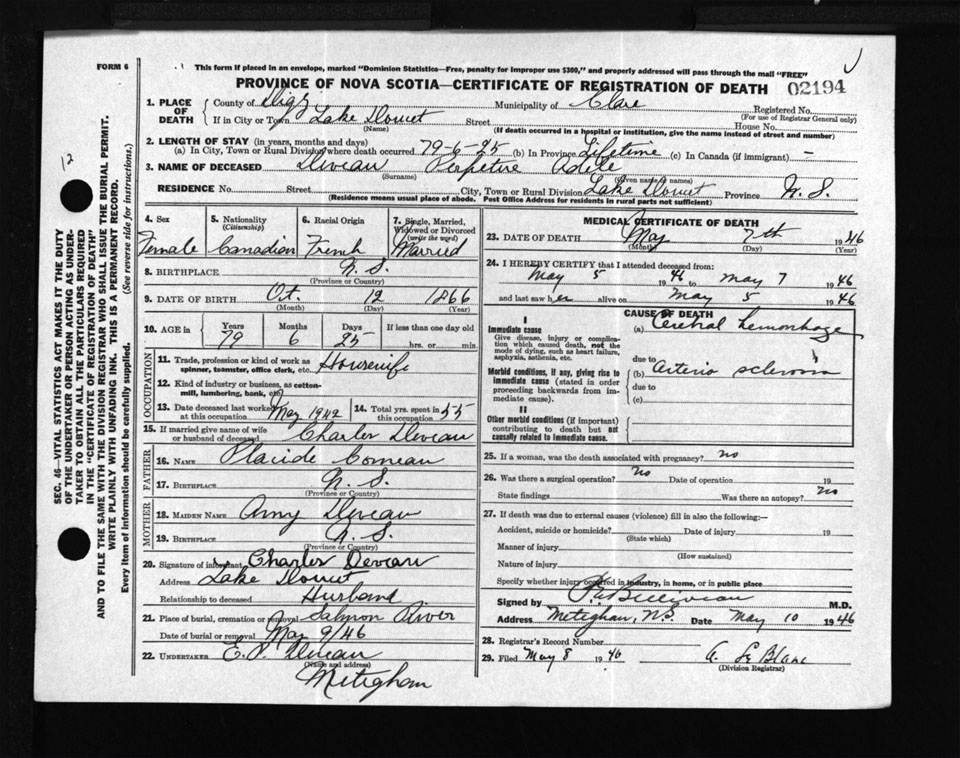 FORM 6
This form if placed in an envelope, marked "Dominion Statistics—Free, penalty for improper use $300," and properly addressed will pass through the mail "FREE"
PROVINCE OF NOVA SCOTIA—CERTIFICATE OF REGISTRATION OF DEATH 02194
1. PLACE OF DEATH
County of Digby Municipality of Clare Registered No.
(For use of Registrar General only)
If in City or Town Lake Doucet Street House No.
(Name) (If death occurred in a hospital or institution, give the name instead of street and number)
2. LENGTH OF STAY (in years, months and days)
(a) In City, Town or Rural Division where death occurred 79-6-25 (b) In Province Lifetime (c) In Canada (if immigrant) —
3. NAME OF DECEASED Deveau Perpetue Adele
(Surname) (Given name or names)
RESIDENCE No. Street City, Town or Rural Division Lake Doucet Province N.S.
(Residence means usual place of abode. Post Office Address for residents in rural parts not sufficient)
4. Sex
Female
5. Nationality
(Citizenship)
Canadian
6. Racial Origin
French
7. Single, Married, Widowed or Divorced
(write the word)
Married
8. BIRTHPLACE N.S.
(Province or Country)
9. DATE OF BIRTH Oct. 12 1866
(Month) (Day) (Year)
10. AGE in Years Months Days If less than one day old
79 6 25 hrs. or min.
OCCUPATION
11. Trade, profession or kind of work as spinner, teamster, office clerk, etc. Housewife
12. Kind of industry or business, as cotton-mill, lumbering, bank, etc.
13. Date deceased last worked at this occupation May 1942
14. Total yrs. spent in this occupation 55
15. If married give name of wife or husband of deceased Charles Deveau
FATHER
16. NAME Placide Comeau
17. BIRTHPLACE N.S.
(Province or Country)
MOTHER
18. MAIDEN NAME Amy Deveau
19. BIRTHPLACE N.S.
(Province or Country)
20. Signature of informant Charles Deveau
Address Lake Doucet
Relationship to deceased Husband
21. Place of burial, cremation or removal Salmon River
Date of burial or removal May 9/46
22. UNDERTAKER E. P. Deveau
(Name and address)
Meteghan
MEDICAL CERTIFICATE OF DEATH
23. DATE OF DEATH May 7th 1946
(Month) (Day) (Year)
24. I HEREBY CERTIFY that I attended deceased from:
May 5 1946 to May 7 1946
and last saw her alive on May 5 1946
CAUSE OF DEATH
I
Immediate cause (a) Cerebral hemorrhage
Give disease, injury or complication which caused death, not the mode of dying, such as heart failure, asphyxia, asthenia, etc.
due to
Morbid conditions, if any, giving rise to immediate cause (stated in order proceeding backwards from immediate cause). (b) Arterio sclerosis
due to
(c)
II
Other morbid conditions (if important) contributing to death but not causally related to immediate cause.
25. If a woman, was the death associated with pregnancy? no
26. Was there a surgical operation? no Date of operation 19
State findings Was there an autopsy? no
27. If death was due to external causes (violence) fill in also the following:—
Accident, suicide or homicide? Date of injury 19
(State which)
Manner of injury
(How sustained)
Nature of injury
Specify whether injury occurred in industry, in home, or in public place
Signed by M.D.
Address Meteghan, N.S. Date May 10 1946
28. Registrar's Record Number
29. Filed May 8 1946 A. LeBlanc
(Division Registrar)
12
SEC. 46—VITAL STATISTICS ACT MAKES IT THE DUTY
OF THE UNDERTAKER OR PERSON ACTING AS UNDER-
TAKER TO OBTAIN ALL THE PARTICULARS REQUIRED
IN THE "CERTIFICATE OF REGISTRATION OF DEATH"
AND TO FILE THE SAME WITH THE DIVISION REGISTRAR WHO SHALL ISSUE THE BURIAL PERMIT.
WRITE PLAINLY WITH UNFADING INK. THIS IS A PERMANENT RECORD.
Every item of information should be carefully supplied. (See reverse side for instructions.)